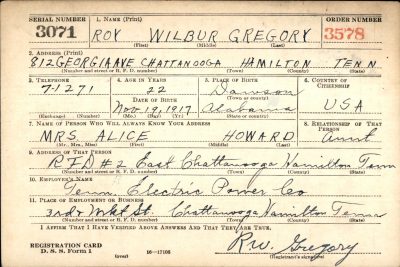 SERIAL NUMBER 1. NAME (Print) ORDER NUMBER
3071 ROY WILBUR GREGORY 3578
(First) (Middle) (Last)
2. ADDRESS (Print)
812 GEORGIA AVE CHATTANOOGA HAMILTON TENN
(Number and street or R. F. D. number) (Town) (County) (State)
3. TELEPHONE 4. AGE IN YEARS 5. PLACE OF BIRTH 6. COUNTRY OF CITIZENSHIP
7-1271 22 Dawson
DATE OF BIRTH (Town or county)
Nov 19, 1917 Alabama USA
(Exchange) (Number) (Mo.) (Day) (Yr.) (State or country)
7. NAME OF PERSON WHO WILL ALWAYS KNOW YOUR ADDRESS 8. RELATIONSHIP OF THAT PERSON
MRS. ALICE HOWARD Aunt
(Mr., Mrs., Miss) (First) (Middle) (Last)
9. ADDRESS OF THAT PERSON
RFD #2 East Chattanooga Hamilton Tenn
(Number and street or R. F. D. number) (Town) (County) (State)
10. EMPLOYER'S NAME
Tenn. Electric Power Co
11. PLACE OF EMPLOYMENT OR BUSINESS
3rd & Mkt St. Chattanooga Hamilton Tenn
(Number and street or R. F. D. number) (Town) (County) (State)
I AFFIRM THAT I HAVE VERIFIED ABOVE ANSWERS AND THAT THEY ARE TRUE.
REGISTRATION CARD R.W. Gregory
D. S. S. Form 1 (over) 16—17105 (Registrant's signature)